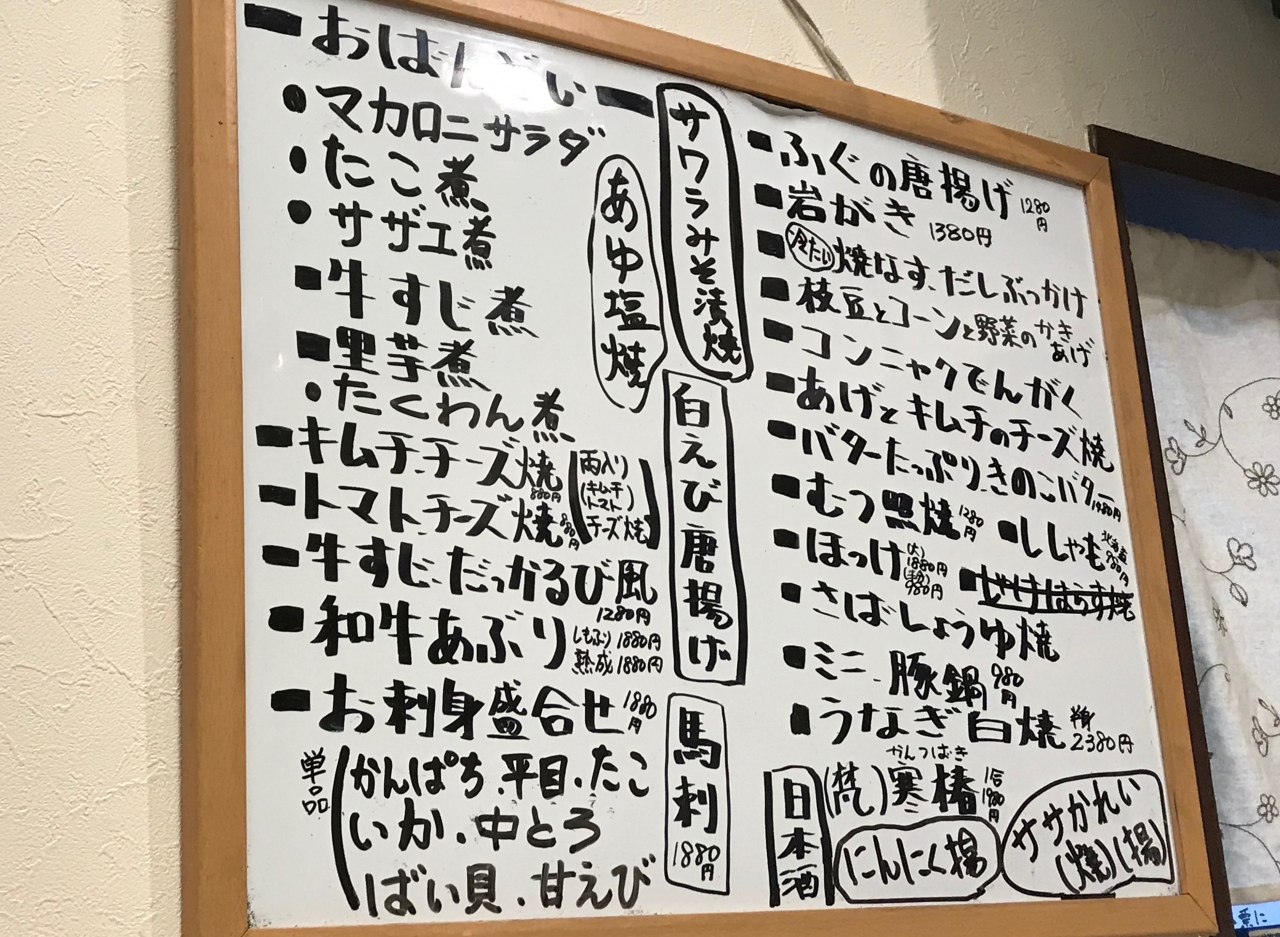 おばんざい
・マカロニサラダ
・たこ煮
・サザエ煮
牛すじ煮
里芋煮
・たくわん煮
キムチチーズ焼 880円
トマトチーズ焼 880円
(両入り
(キムチ
トマト)
チーズ焼)
牛すじ、だっかるび風
1280円
和牛あぶり
しもふり 1880円
熟成 1880円
お刺身盛合せ 1880円
単品
かんぱち、平目、たこ
いか、中とろ
ばい貝、甘えび
あゆ塩焼
サワラみそ漬焼
白えび唐揚げ
馬刺 1880円
ふぐの唐揚げ 1280円
岩がき 1380円
冷たい 焼なす、だしぶっかけ
枝豆とコーンと野菜のかきあげ
コンニャクでんがく
あげとキムチのチーズ焼
バターたっぷり、きのこバター 1480円
むつ照焼 1280円
ししゃも 北海道 980円
ほっけ (大) 1880円
980円
さばしょうゆ焼
ミニ 豚鍋 980円
うなぎ白焼 2380円
日本酒
(梵) 寒椿 1合 980円
かんつばき
にんにく揚
ササかれい
(焼)(揚)